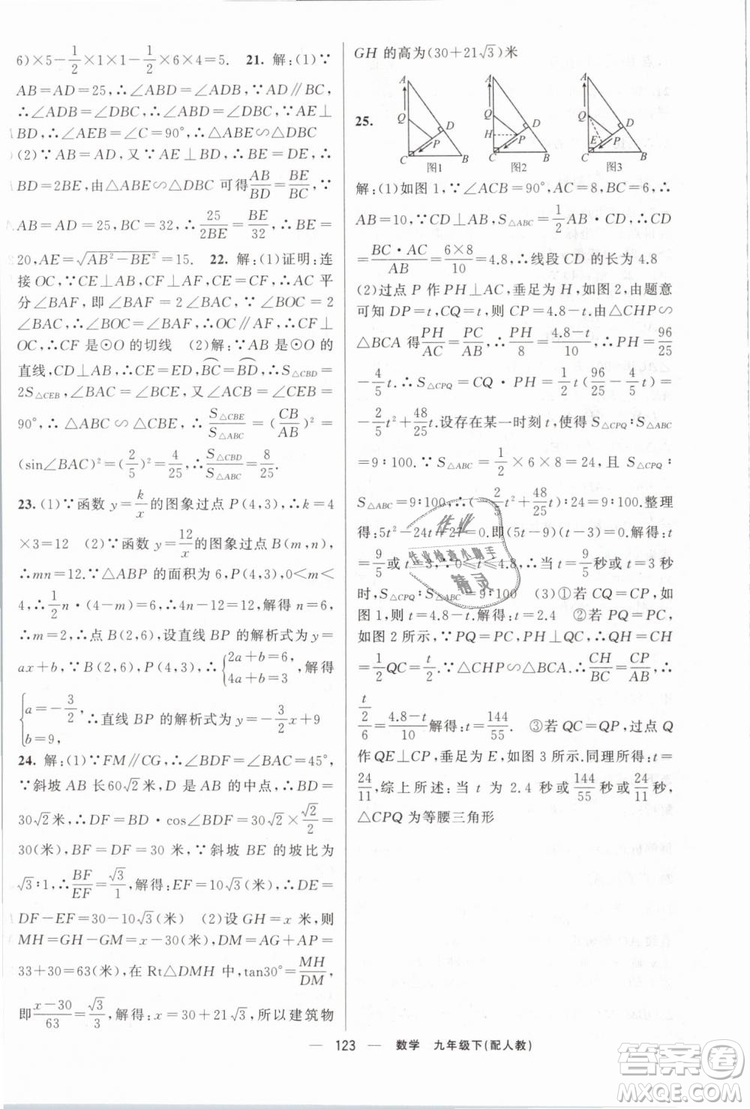 6)×5-1/2×1×1-1/2×6×5=5/2. 21. 解：(1)∵
AB=AD=25，∴∠ABD=∠ADB，∵AD∥BC，
∴∠ADB=∠DBC，∴∠ABD=∠DBC，∵AE⊥
BD，∴∠AEB=∠C=90°，∴△ABE∽△DBC
(2)∵AB=AD，又AE⊥BD，∴BE=DE，∴
BD=2BE，由△ABE∽△DBC可得AB/BD=BE/BC，
∵AB=AD=25，BC=32，∴25/2BE=BE/32，∴BE=
20，AE=√(AB²-BE²)=15. 22. 解：(1)证明：连
接OC，∵CE⊥AB，CF⊥AF，CE=CF，∴AC平
分∠BAF，即∠BAF=2∠BAC，∵∠BOC=2
∠BAC，∴∠BOC=∠BAF，∴OC∥AF，∴
CF⊥OC，∴CF是⊙O的切线 (2)解：∵AB是⊙O的
直径，CD⊥AB，∴CE=ED，BC=BD，∴S△CBD=
2S△CEB，∠BAC=∠BCE，∵∠ACB=∠CEB=
90°，∴△ABC∽△CBE，∴S△CBE/S△ABC=(CB/AB)²=
(sin∠BAC)²=(2/5)²=4/25，∴S△CBD/S△ABC=8/25
23. (1)∵函数y=k/x的图象过点P(4，3)，∴k=4
×3=12 (2)∵函数y=12/x的图象过点B(m，n)，
∴mn=12，∵△ABP的面积为6，P(4，3)，0<m<
4，∴1/2n·(4-m)=6，∴4n-12=12，解得n=6，
∴m=2，∴点B(2，6)，设直线BP的解析式为y=
ax+b，∵B(2，6)，P(4，3)，∴{2a+b=6，4a+b=3，解得
{a=-3/2，b=9，∴直线BP的解析式为y=-3/2x+9
24. 解：(1)∵FM∥CG，∴∠BDF=∠BAC=45°，
∵斜坡AB长60√2米，D是AB的中点，∴BD=
30√2米，∴DF=BD·cos∠BDF=30√2×√2/2=
30(米)，BF=DF=30米，∵斜坡BE的坡比为
√3∶1，∴BF/EF=√3/1，解得：EF=10√3(米)，∴DE=
DF-EF=30-10√3(米) (2)设GH=x米，则
MH=GH-GM=x-30(米)，DM=AG+AP=
33+30=63(米)，在Rt△DMH中，tan30°=MH/DM，
即(x-30)/63=√3/3，解得：x=30+21√3，所以建筑物
GH的高为(30+21√3)米
25.
A Q D P C B 图1
A Q D H P C B 图2
A Q D E P C B 图3
解：(1)如图1，∵∠ACB=90°，AC=8，BC=6，∴
AB=10，∵CD⊥AB，∴S△ABC=1/2AB·CD，∴
CD=BC·AC/AB=6×8/10=4.8，∴线段CD的长为4.8
(2)过点P作PH⊥AC，垂足为H，如图2，由题意
可知DP=t，CQ=t，则CP=4.8-t，由△CHP∽
△BCA得PH/AC=PC/AB，∴PH/8=(4.8-t)/10，∴PH=96/25
-4/5t，∴S△CPQ=1/2CQ·PH=1/2t(96/25-4/5t)=
-2/5t²+48/25t，设存在某一时刻t，使得S△CPQ∶S△ABC
=9∶100，∵S△ABC=1/2×6×8=24，且S△CPQ∶S△ABC
=9∶100，∴(-2/5t²+48/25t)∶24=9∶100，整理
得：5t²-24t+27=0，即(5t-9)(t-3)=0，解得：t=
9/5或t=3，∵0≤t≤4.8，∴当t=9/5秒或t=3秒
时，S△CPQ∶S△ABC=9∶100 (3)①若CQ=CP，如
图1，则t=4.8-t，解得：t=2.4 ②若PQ=PC，如
图2所示，∵PQ=PC，PH⊥QC，∴QH=CH
=1/2QC=t/2，∵△CHP∽△BCA，∴CH/BC=CP/AB，∴
(t/2)/6=(4.8-t)/10，解得：t=144/55. ③若QC=QP，过点Q
作QE⊥CP，垂足为E，如图3所示，同理所得：t=
24/11，综上所述：当t为2.4秒或144/55秒或24/11秒时，
△CPQ为等腰三角形
作业
作业检查小助手
精灵
— 123 — 数学 九年级下(配人教)
答案圈
MXQE.COM